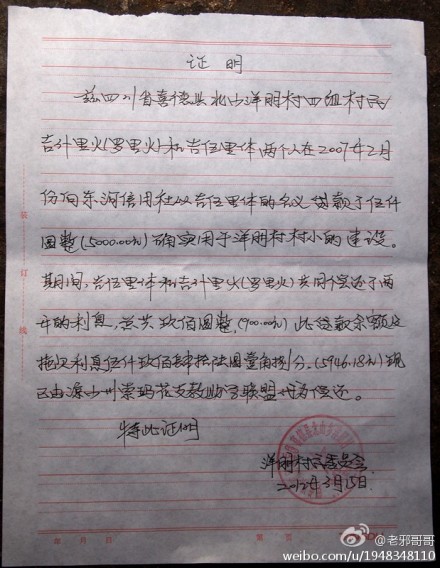 证明
兹四川省喜德县北山洋朋村四组村民
吉什里火(罗里火)和吉伍里体两个人在2007年2月
份向东河信用社以吉伍里体的名义贷款了伍仟
圆整(5000.00元)确实用于洋朋村村小的建设。
其期间,吉伍里体和吉什里火(罗里火)共同偿还了两
年的利息,总共玖佰圆整,(900.00元)此贷款余额及
拖欠利息伍仟玖佰肆拾陆圆壹角捌分,(5946.18元)现
已由凉山州索玛花支教助学联盟代为偿还。
特此证明
洋朋村民委员会
2012年3月15日
装
订
线
年 月 日
第 页
@老邪哥哥
weibo.com/u/1948348110